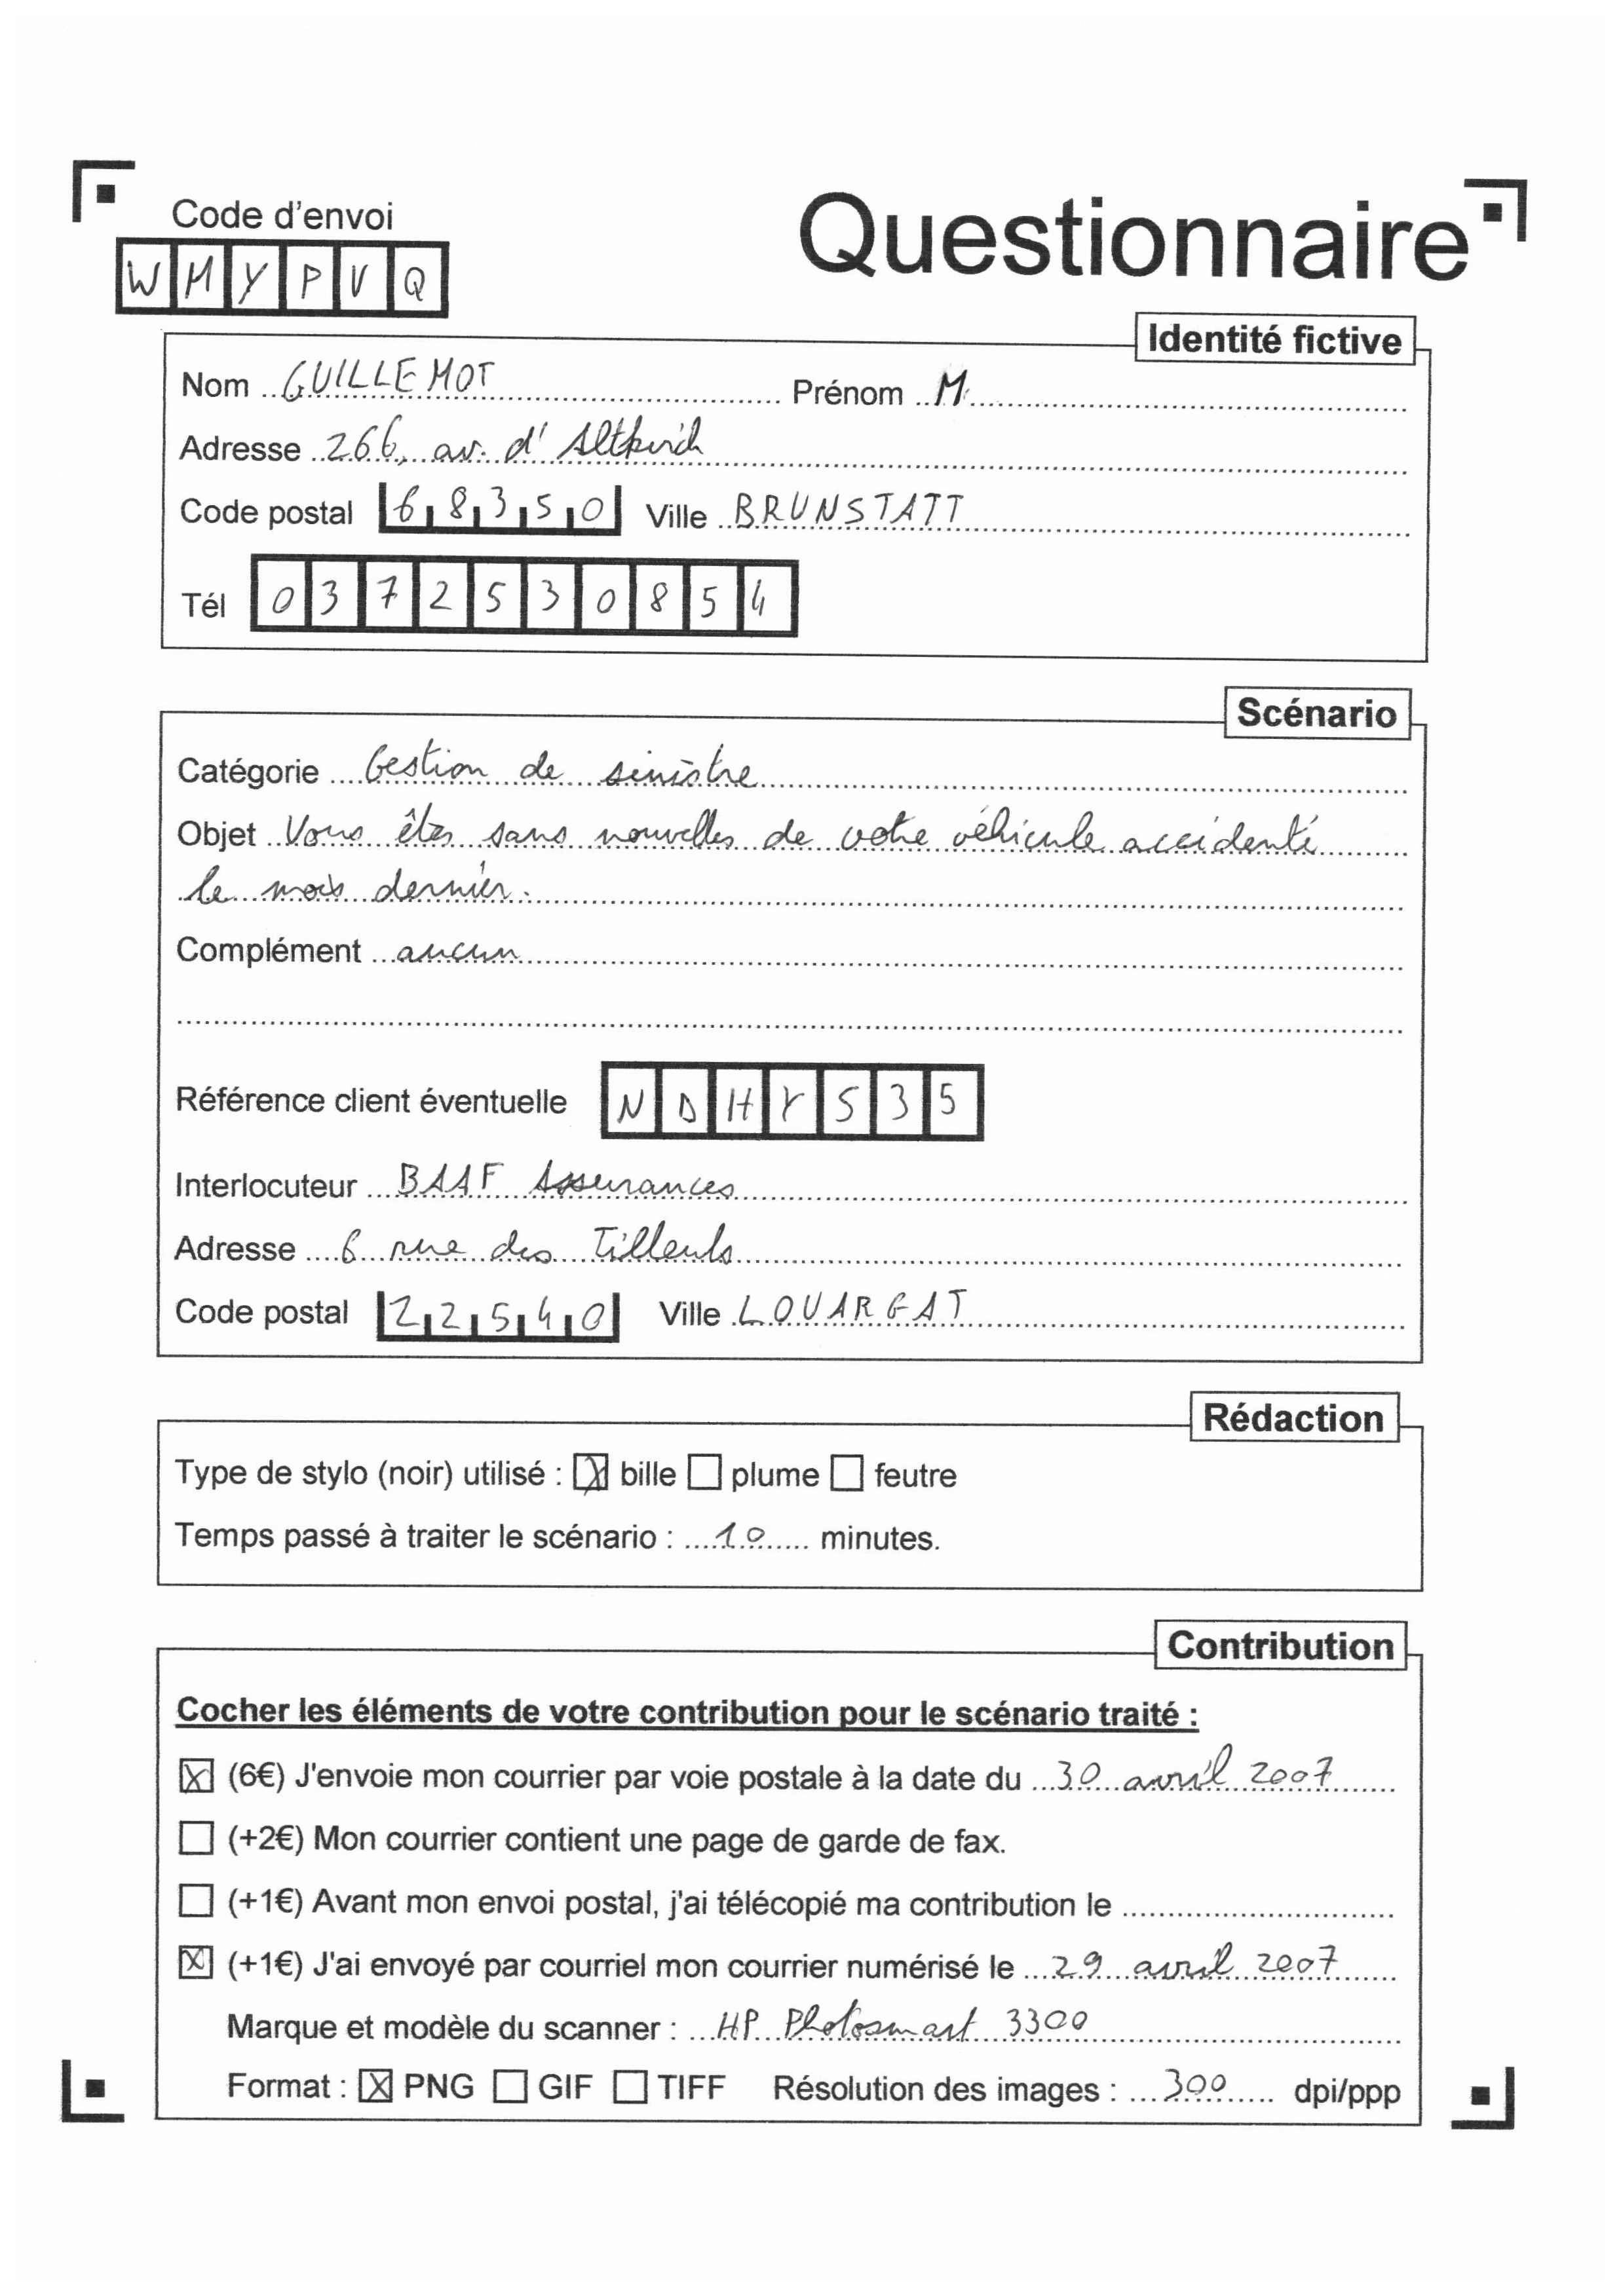 Code d'envoi
Questionnaire
WMYPVQ
Identité fictive
Nom GUILLEMOT Prénom M.
Adresse 266, av. d'Altkirch
Code postal 68350 Ville BRUNSTATT
Tél 0372530854
Scénario
Catégorie Gestion de sinistre
Objet Vous êtes sans nouvelles de votre véhicule accidenté
le mois dernier.
Complément aucun
Référence client éventuelle NDHYS35
Interlocuteur BAAF Assurances
Adresse 6 rue des Tilleuls
Code postal 22540 Ville LOUARGAT
Rédaction
Type de stylo (noir) utilisé : bille plume feutre
Temps passé à traiter le scénario : 10 minutes.
Contribution
Cocher les éléments de votre contribution pour le scénario traité :
(6€) J'envoie mon courrier par voie postale à la date du 30 avril 2007
(+2€) Mon courrier contient une page de garde de fax.
(+1€) Avant mon envoi postal, j'ai télécopié ma contribution le
(+1€) J'ai envoyé par courriel mon courrier numérisé le 29 avril 2007
Marque et modèle du scanner : HP Photosmart 3300
Format : PNG GIF TIFF Résolution des images : 300 dpi/ppp